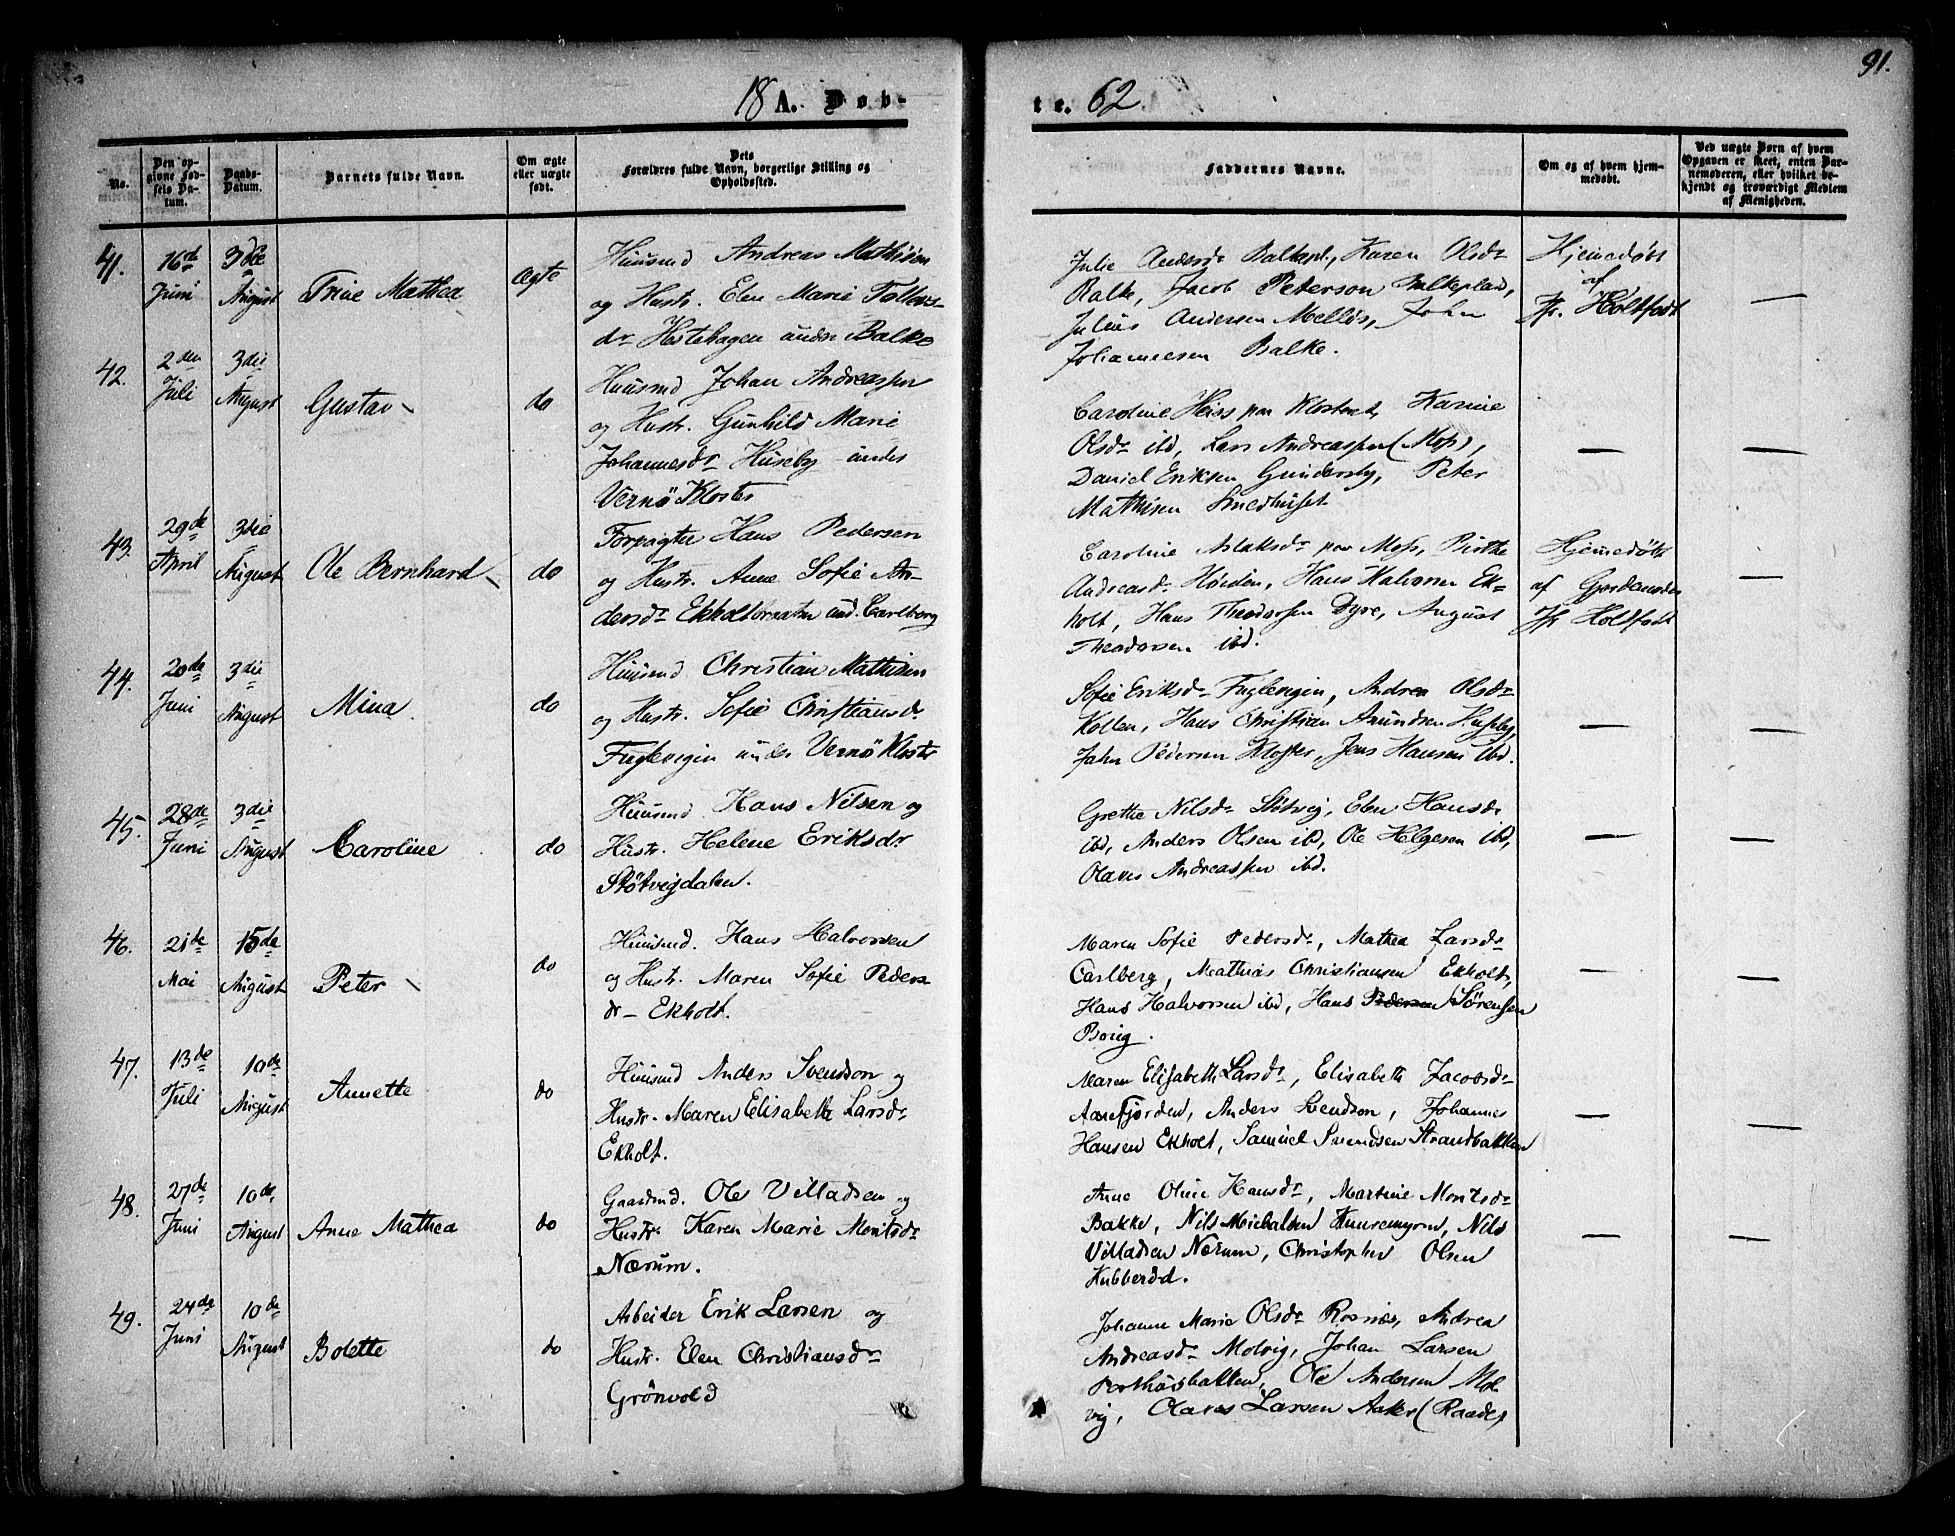 18 A. Døb-
te. 62.
91.
No.
Den op-
givne Fød-
sels Da-
tum.
Daabs-
Datum.
Barnets fulde Navn.
Om ægte
eller uægte
født.
Dets
Forældres fulde Navn, borgerlige Stilling og
Opholdssted.
Faddernes Navne.
Om og af hvem hjem-
medøbt.
Ved uægte Børn af hvem
Opgaven er skeet, enten Bar-
nemoderen, eller hvilket be-
kjendt og troværdigt Medlem
af Menigheden.
41.
16de
Juni
3die
August
Trine Mathea
Ægte
Huusmd Andreas Mathisen
og Hustr. Elen Marie Tollefs-
dr Hestehagen under Balke
Julie Andersdr Balkepl., Karen Olsdr
Balke, Jacob Peterson Balkeplad,
Julius Andersen Melløs, John
Johannesen Balke.
Hjemedøbt
af
Jfr. Holtfodt
—
42.
2den
Juli
3die
August
Gustav
do
Huusmd Johan Andreassen
og Hustr. Gunhild Marie
Johannesdr Huseby under
Vernö Kloster
Caroline Heiss paa Klosteret, Karine
Olsdr ibd, Lars Andreassen (Moss),
Daniel Eriksen Gundersby, Peter
Mathisen Smedhuset
—
—
43.
29de
April
3die
August
Ole Bernhard
do
Forpagter Hans Pedersen
og Hustr. Anne Sofie An-
dersdr Ekholtbraaten und. Carlberg
Caroline Aslaksdr paa Moss, Birthe
Andreasdr Hörden, Hans Halvorsen Ek-
holt, Hans Theodorsen Dyre, August
Theodorsen ibd.
Hjemedøbt
af Gjordemoder
Jfr Holtfodt
—
44.
20de
Juni
3die
August
Mina
do
Huusmd Christian Mathisen
og Hustr. Sofie Christiansdr
Fuglevigen under Vernö Kloster
Sofie Eriksdr Fuglevigen, Andrea Olsdr
Kollen, Hans Christian Amundsen Huseby,
John Pedersen Kloster, Jens Hansen ibd.
—
—
45.
28de
Juni
3die
August
Caroline
do
Huusmd. Hans Nilsen og
Hustr. Helene Eriksdr
Støtvigdalen.
Grethe Nilsdr Støtvig, Elen Hansdr
ibd, Anders Olsen ibd, Ole Helgesen ibd,
Olaves Andreassen ibd.
—
—
46.
21de
Mai
15de
August
Peter
do
Huusmd. Hans Halvorsen
og Hustr. Maren Sofie Peders
dr Ekholt.
Maren Sofie Pedersdr, Mathea Larsdr
Carlberg, Mathias Christiansen Ekholt,
Hans Halvorsen ibd, Hans Pedersen Sörensen
Borig.
—
—
47.
13de
Juli
10de
August
Annette
do
Huusmd Anders Svendson og
Hustr. Maren Elisabeth Larsdr
Ekholt.
Maren Elisabeth Larsdr, Elisabeth Jacobsdr
Aarefjorden, Anders Svendson, Johannes
Hansen Ekholt, Samuel Svendsen Strandbakken
—
—
48.
27de
Juni
10de
August
Anne Mathea
do
Gaardmd. Ole Villadsen og
Hustr. Karen Marie Moritsdr
Nærum.
Anne Oline Hansdr, Martine Moritsdr
Bakke, Nils Michalsen Knuremyren, Nils
Villadsen Nærum, Christopher Olsen
Kubberöd.
—
—
49.
24de
Juni
10de
August
Bolette
do
Arbeider Erik Larsen og
Hustr. Elen Christiansdr
Grönvold
Johanne Marie Olsdr Rosnæs, Andrea
Andreasdr Molvig, Johan Larsen
Ole Andersen Mol
vig, Olaves Larsen Aaker (Raade)